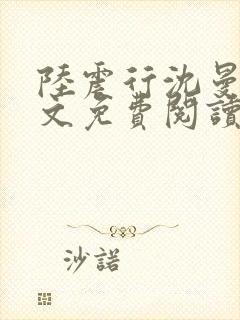 陸震行沈曼
文免費閱讀
沙諾